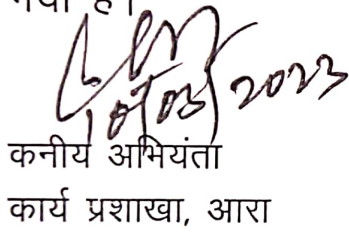 10/03/2023
कनीय अभियंता
कार्य प्रशाखा, आरा